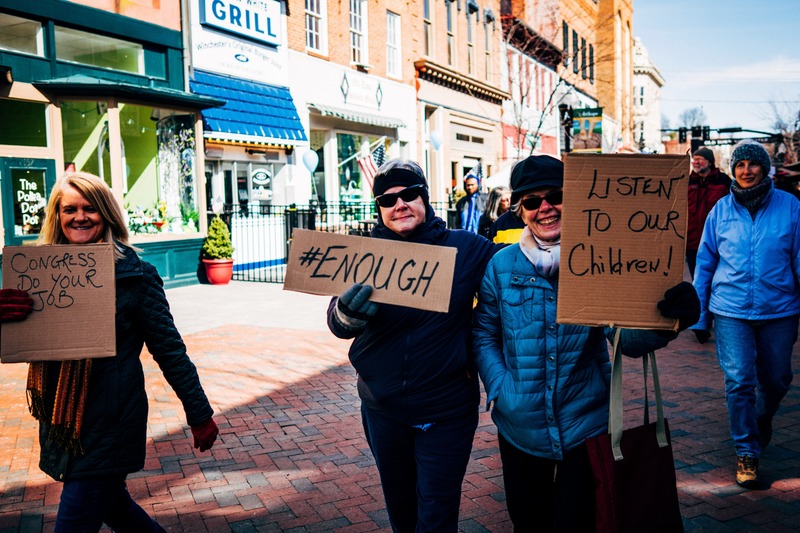 GRILL
Winchester's Original Burger
The
Polka
Dot
CONGRESS
DO YOUR
JOB
#ENOUGH
LISTEN
TO OUR
Children!